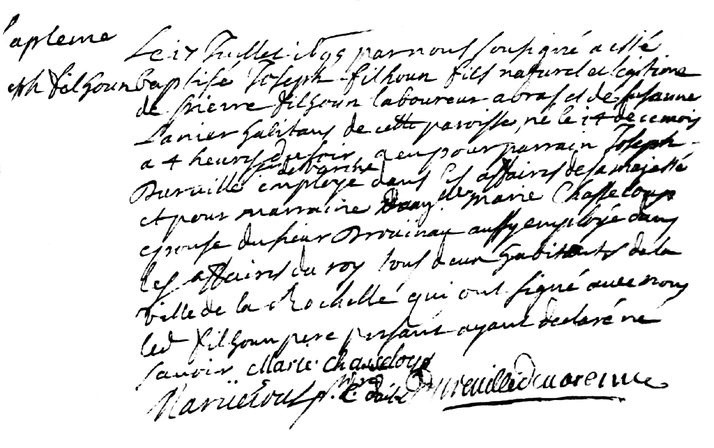 Bapteme
Joseph filhoun
Le 17 Juillet 1695 par nous soussigné a esté
baptisé Joseph filhoun fils naturel et legitime
de pierre filhoun laboureur a bras et de susanne
Lanier habitans de cette paroisse, né le 14 de ce mois
a 4 heures du soir, a eu pour parrain Joseph
Dureuille employé dans les affaires de sa majesté
et pour marraine Marie Chasseloup
epouse du sieur Drouinay aussy employé dans
les affaires du roy tous deux habitants de la
ville de la Rochelle qui ont signé avec nous
led filhoun pere present ayant declaré ne
savoir Marie Chasseloup